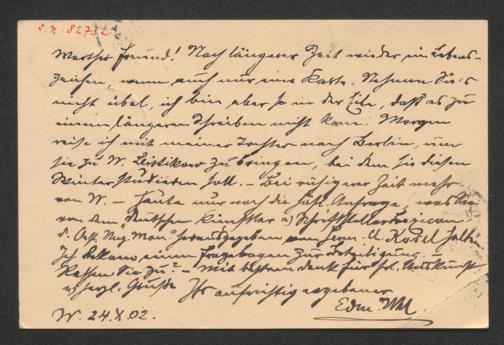 I.N. 82732
Werther Freund! Nach längerer Zeit wieder ein Lebens-
zeichen, wenn auch nur eine Karte. Nehmen Sie's
nicht übel, ich bin aber so in der Eile, daß es zu
einem längeren Schreiben nicht kam. Morgen
reise ich mit meiner Tochter nach Berlin, um
sie zu W. Leistikow zu bringen, bei dem sie diesen
Winter studieren soll. – Bei ruhigerer Zeit mehr
von W. – Heute nur noch die Anfrage, was Sie
von dem "Deutschen Künstler u. Schriftsteller Lexicon
herausgegeben von Herm. A. Kosel halten.
Ich bekam einen Fragebogen zur Beteiligung. –
Kennen Sie ihn? – Mit bestem Dank für frdl. Auskunft
u. herzl. Grüße Ihr aufrichtig ergebener
Edm.
W. 24.X.02.